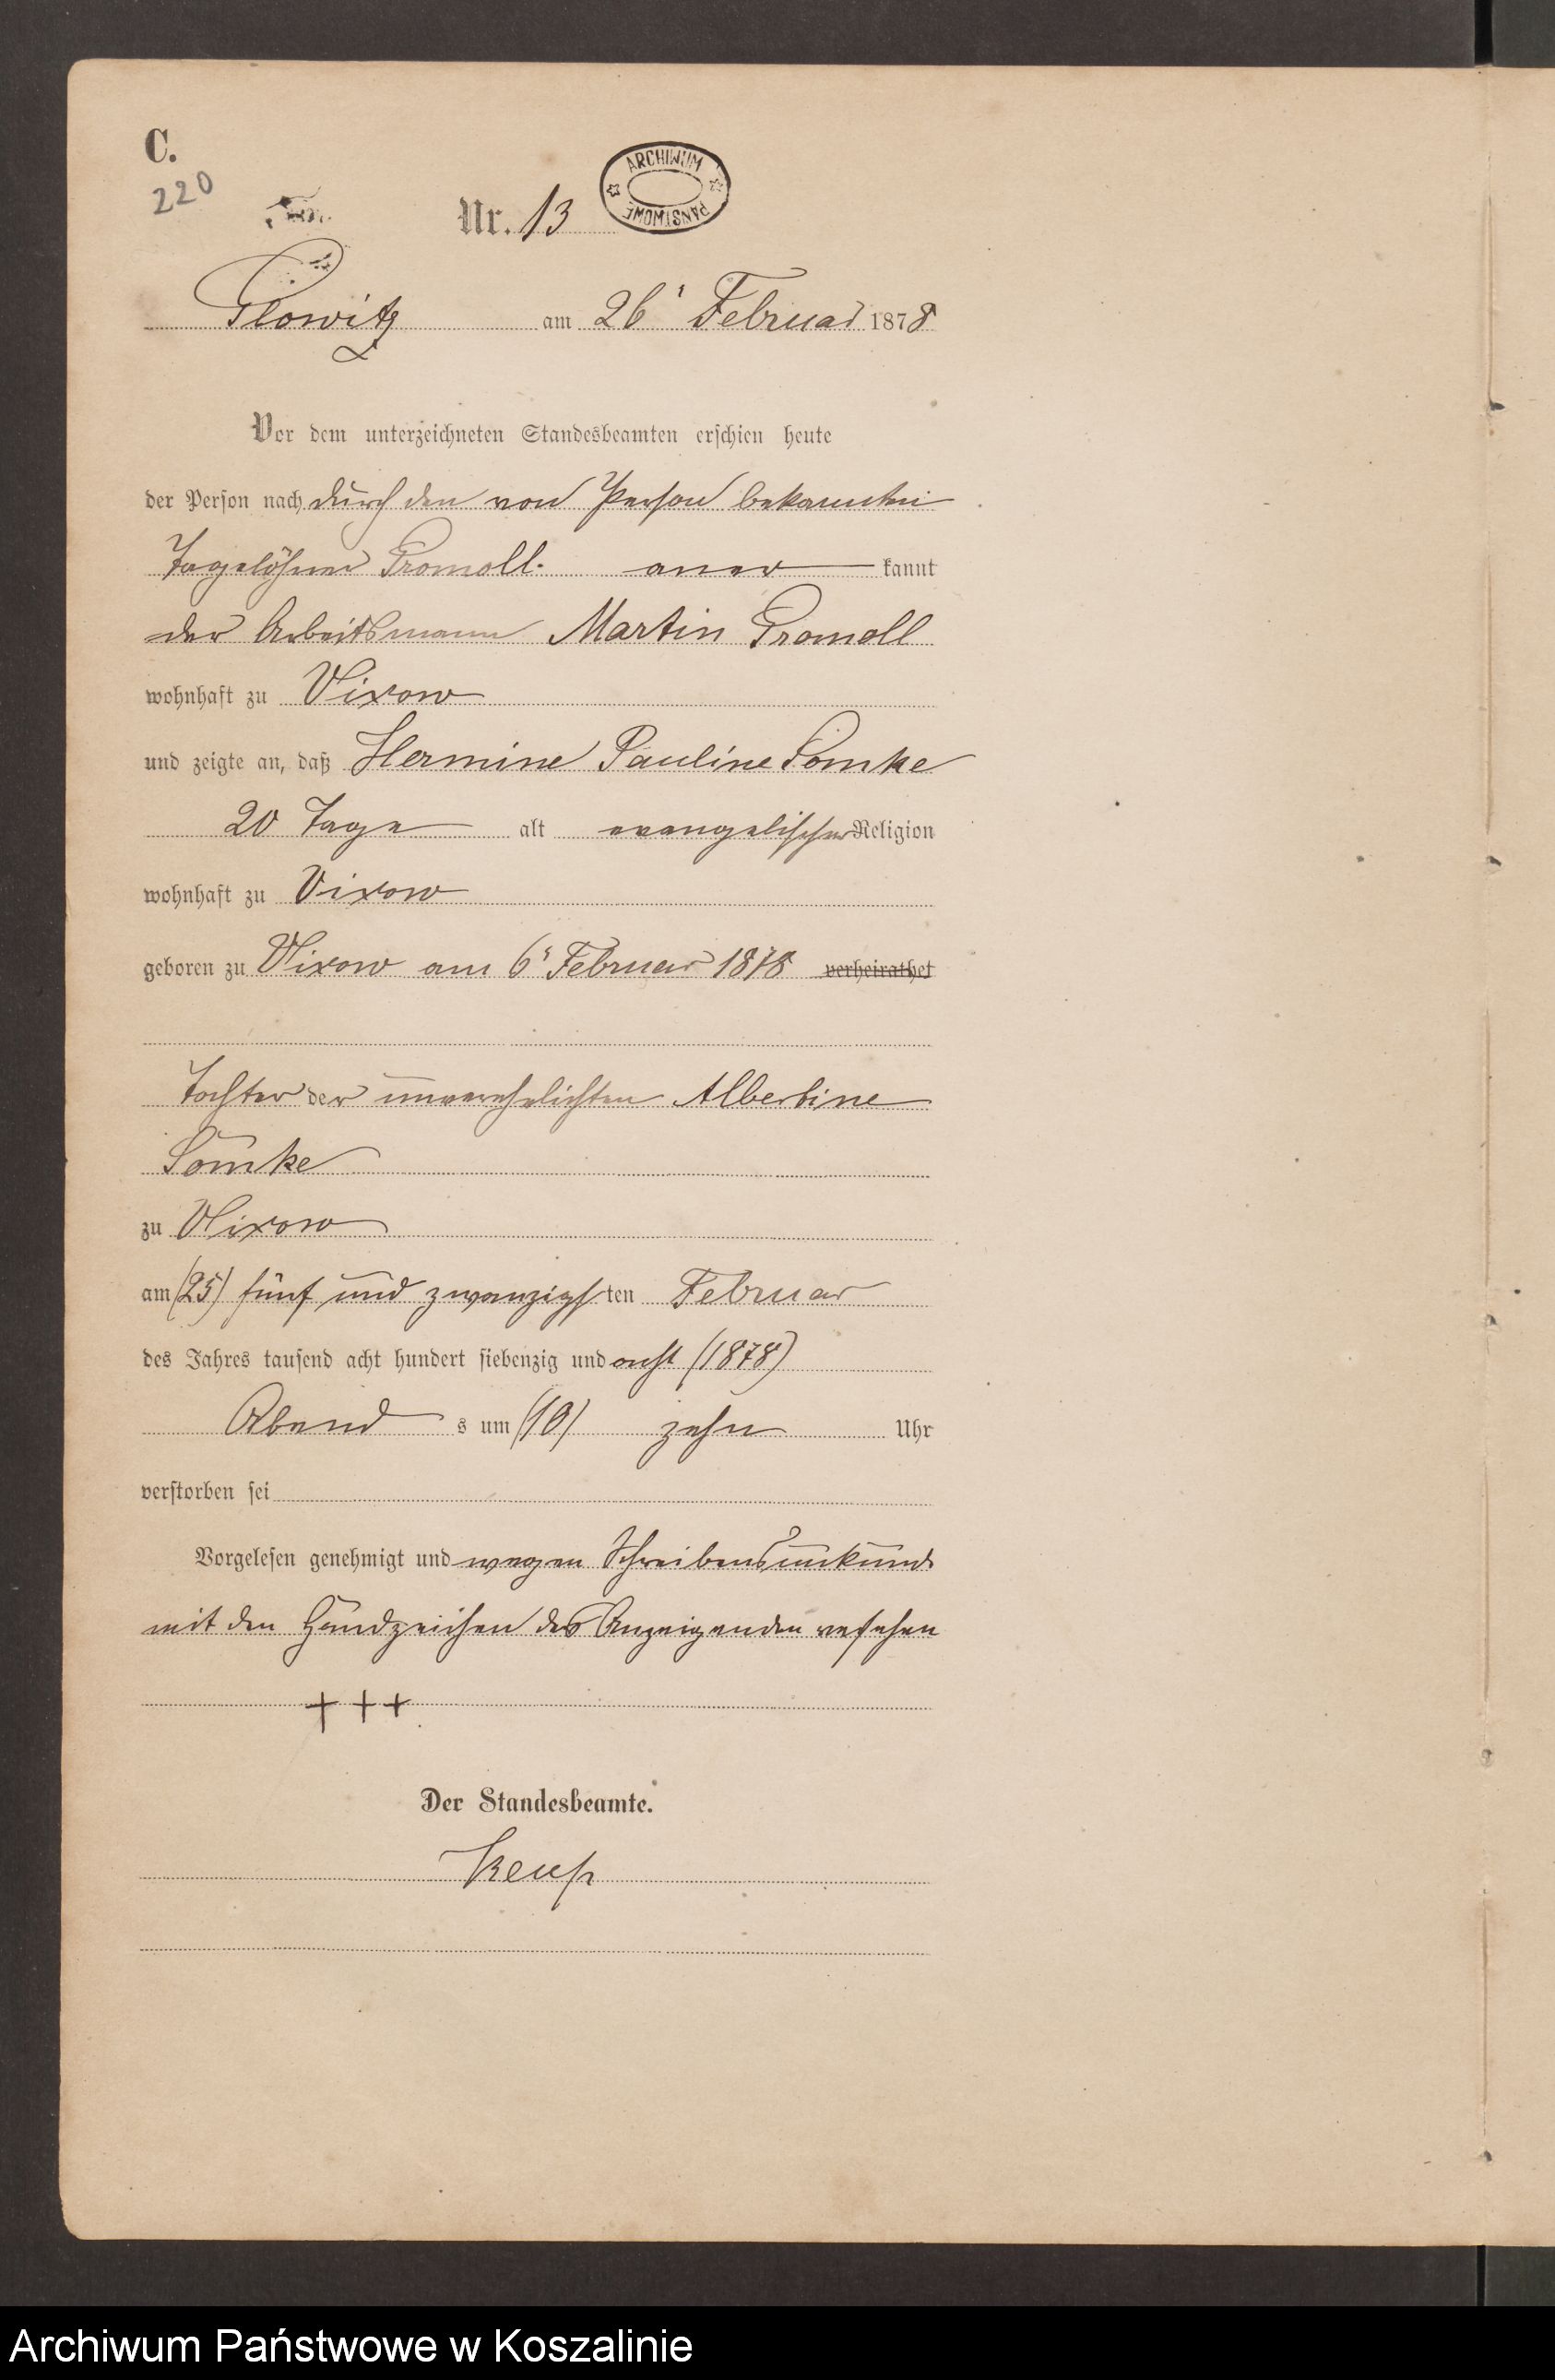 C.
220
Nr. 13
ARCHIWUM PAŃSTWOWE
Glowitz am 26t Februar 1878
Vor dem unterzeichneten Standesbeamten erschien heute
der Person nach durch den von Person bekannten
Tagelöhner Gromoll. aner kannt
der Arbeitsmann Martin Gromoll
wohnhaft zu Vixow
und zeigte an, daß Hermine Pauline Lomke
20 Tage alt evangelischer Religion
wohnhaft zu Vixow
geboren zu Vixow am 6t Februar 1878 verheirathet
Tochter der unverehelichten Albertine
Lomke
zu Vixow
am (25) fünf und zwanzigsten Februar
des Jahres tausend acht hundert siebenzig und acht (1878)
Abend s um (10) zehn Uhr
verstorben sei
Vorgelesen genehmigt und wegen Schreibensunkunde
mit den Handzeichen des Anzeigenden versehen
+ + +
Der Standesbeamte.
Archiwum Państwowe w Koszalinie